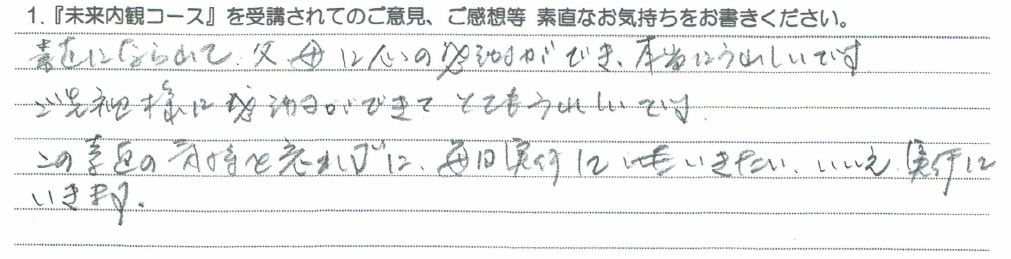 1.『未来内観コース』を受講されてのご意見、ご感想等 素直なお気持ちをお書きください。
素直になられて、父、母に心の感謝ができ、本当にうれしいです
ご先祖様に感謝ができてとてもうれしいです。
この素直の気持を忘れずに、毎日実行していきたい、いいえ、実行して
いきます。